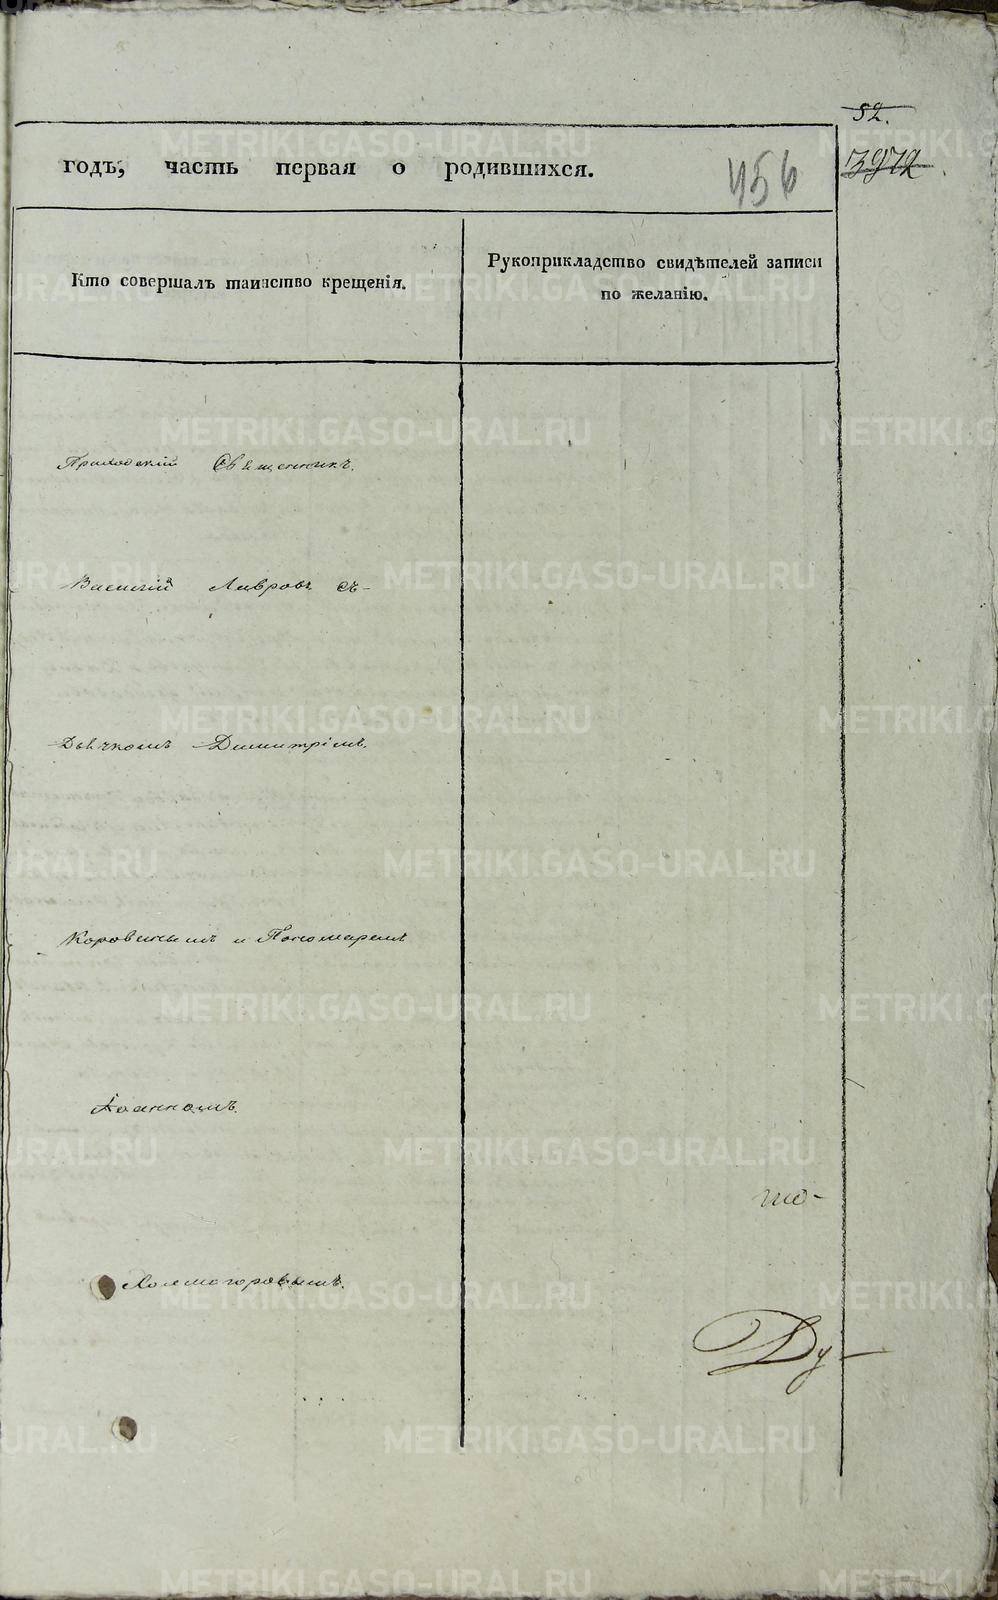 52.
годъ, часть первая о родившихся.
456
3972
Кто совершалъ таинство крещенія.
Рукоприкладство свидѣтелей записи
по желанію.
Приходскій Священникъ.
Василій Лавровъ съ-
Дьячкомъ Димитріемъ
Коровинымъ и Пономаремъ
Іоанномъ
Холмогоровымъ.
Ду-
METRIKI.GASO-URAL.RU